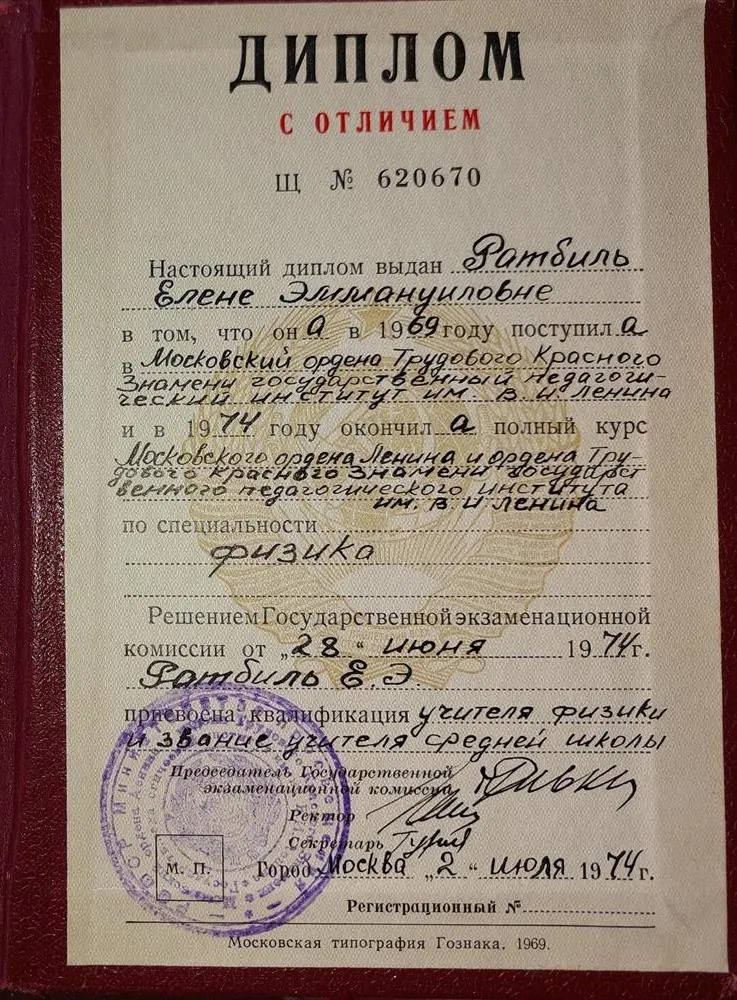 ДИПЛОМ
С ОТЛИЧИЕМ
Щ № 620670
Настоящий диплом выдан Ратбиль
Елене Эммануиловне
в том, что он а в 1969 году поступил а
в Московский ордена Трудового Красного
Знамени государственный педагоги-
ческий институт им. В. И. Ленина
и в 1974 году окончил а полный курс
Московского ордена Ленина и ордена Тру-
дового Красного Знамени государст
венного педагогического института
им. В. И Ленина
по специальности
физика
Решением Государственной экзаменационной
комиссии от „28“ июня 1974г.
Ратбиль Е. Э
присвоена квалификация учителя физики
и звание учителя средней школы
Председатель Государственной
экзаменационной комиссии
Ректор
Секретарь
М. П.
Город Москва „2“ июля 1974г.
Регистрационный №
Московская типография Гознака. 1969.